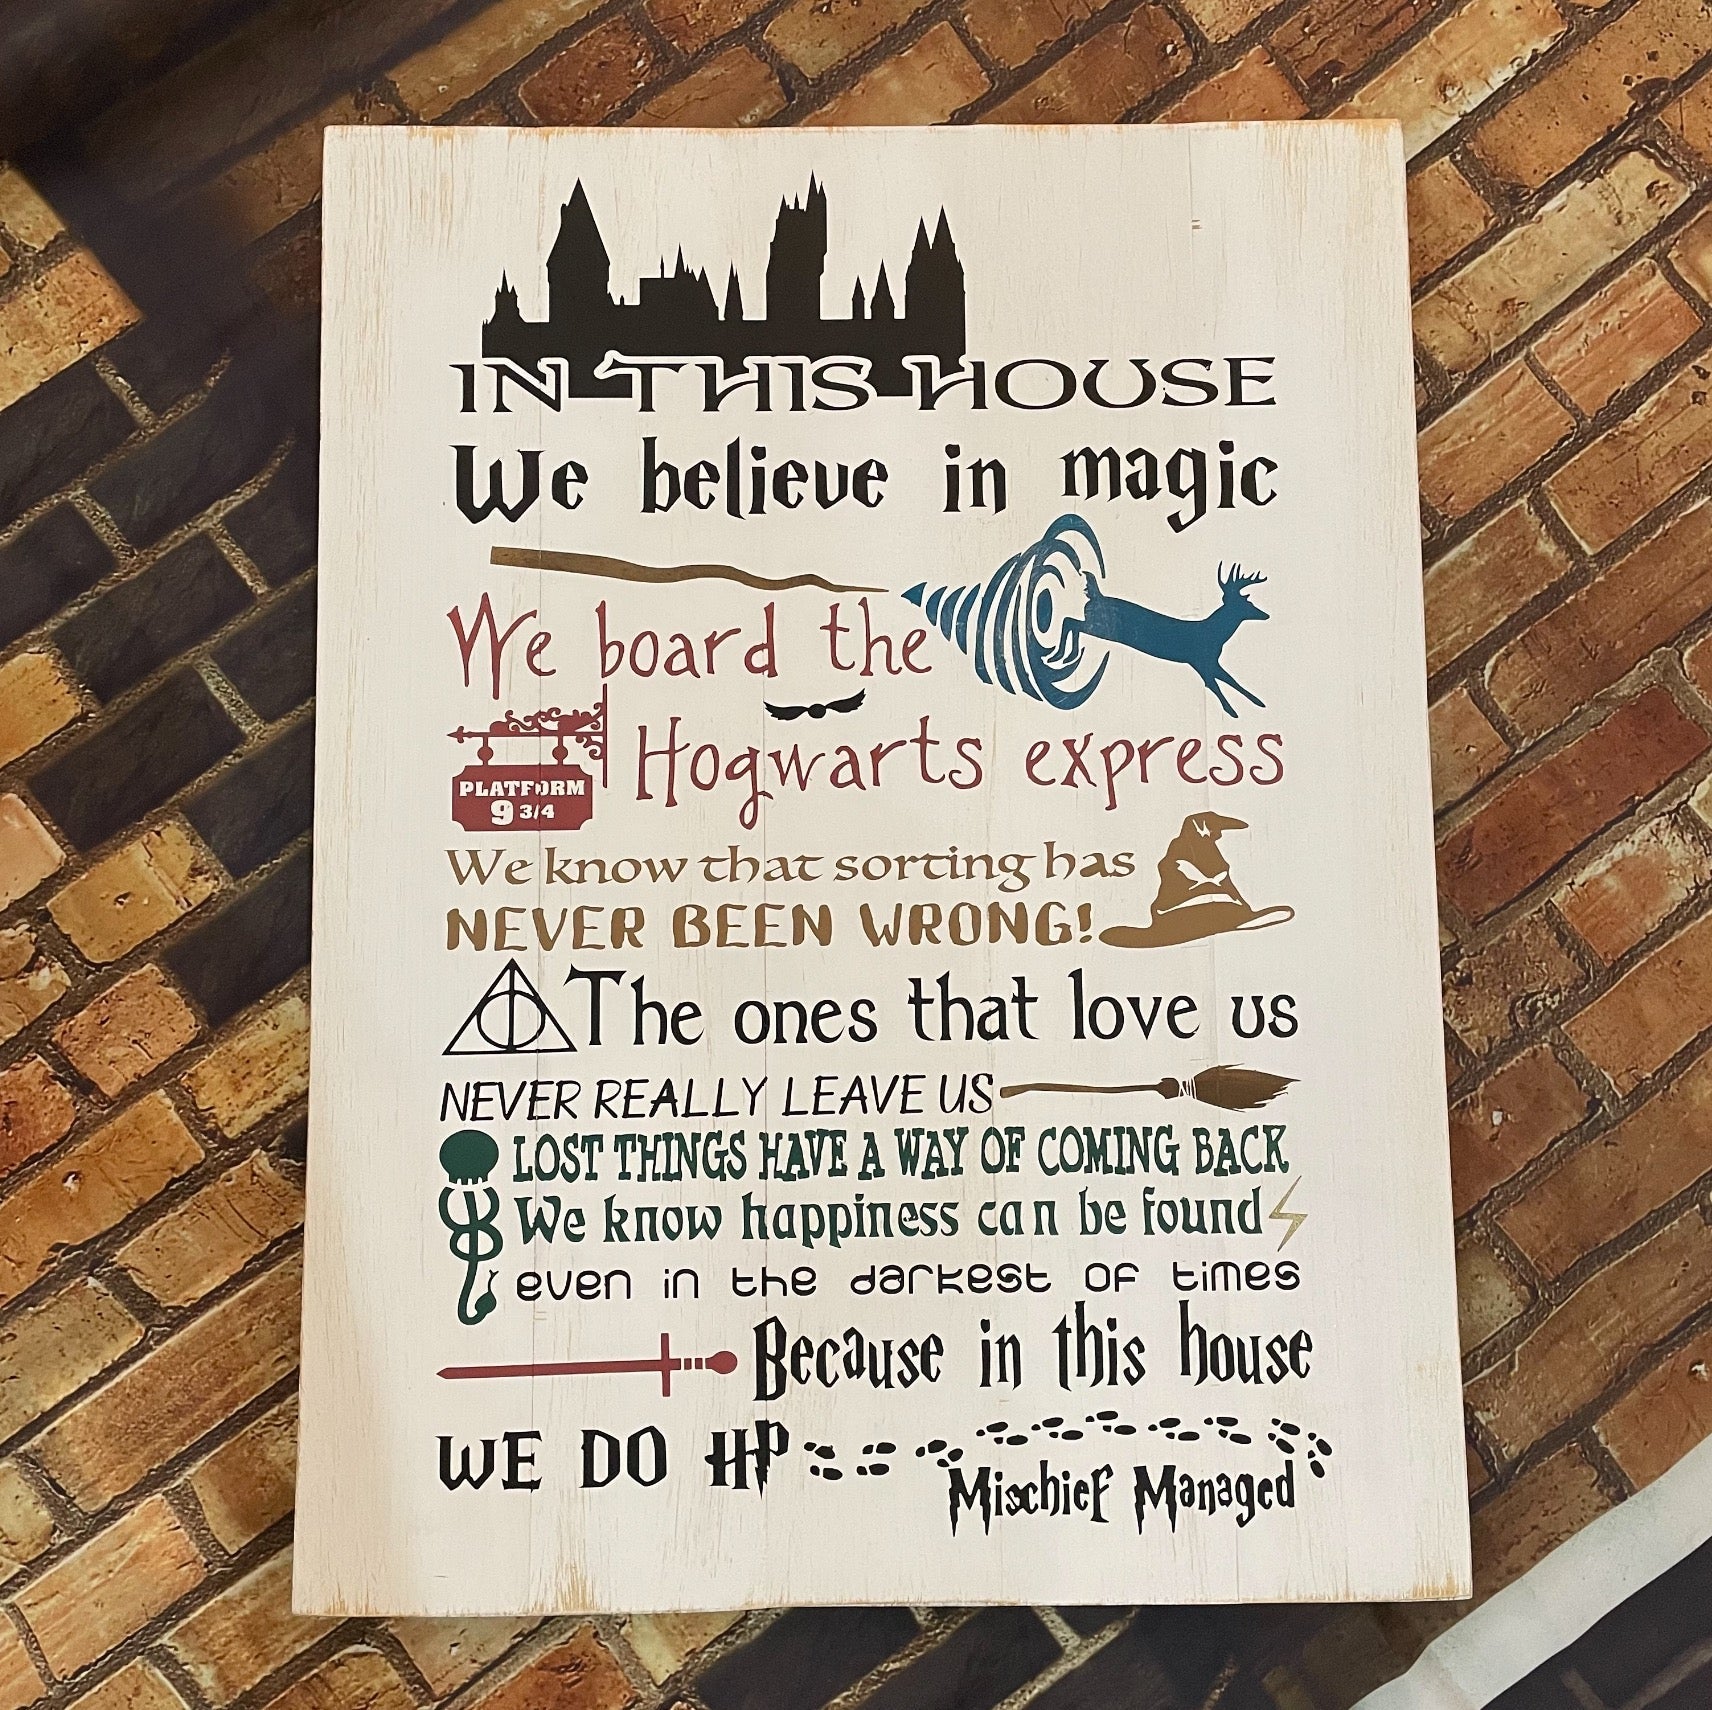 IN THIS HOUSE
We believe in magic
We board the
Hogwarts express
PLATFORM
9 3/4
We know that sorting has
NEVER BEEN WRONG!
The ones that love us
NEVER REALLY LEAVE US
LOST THINGS HAVE A WAY OF COMING BACK
We know happiness can be found
even in the darkest OF times
Because in this house
WE DO HP
Mischief Managed